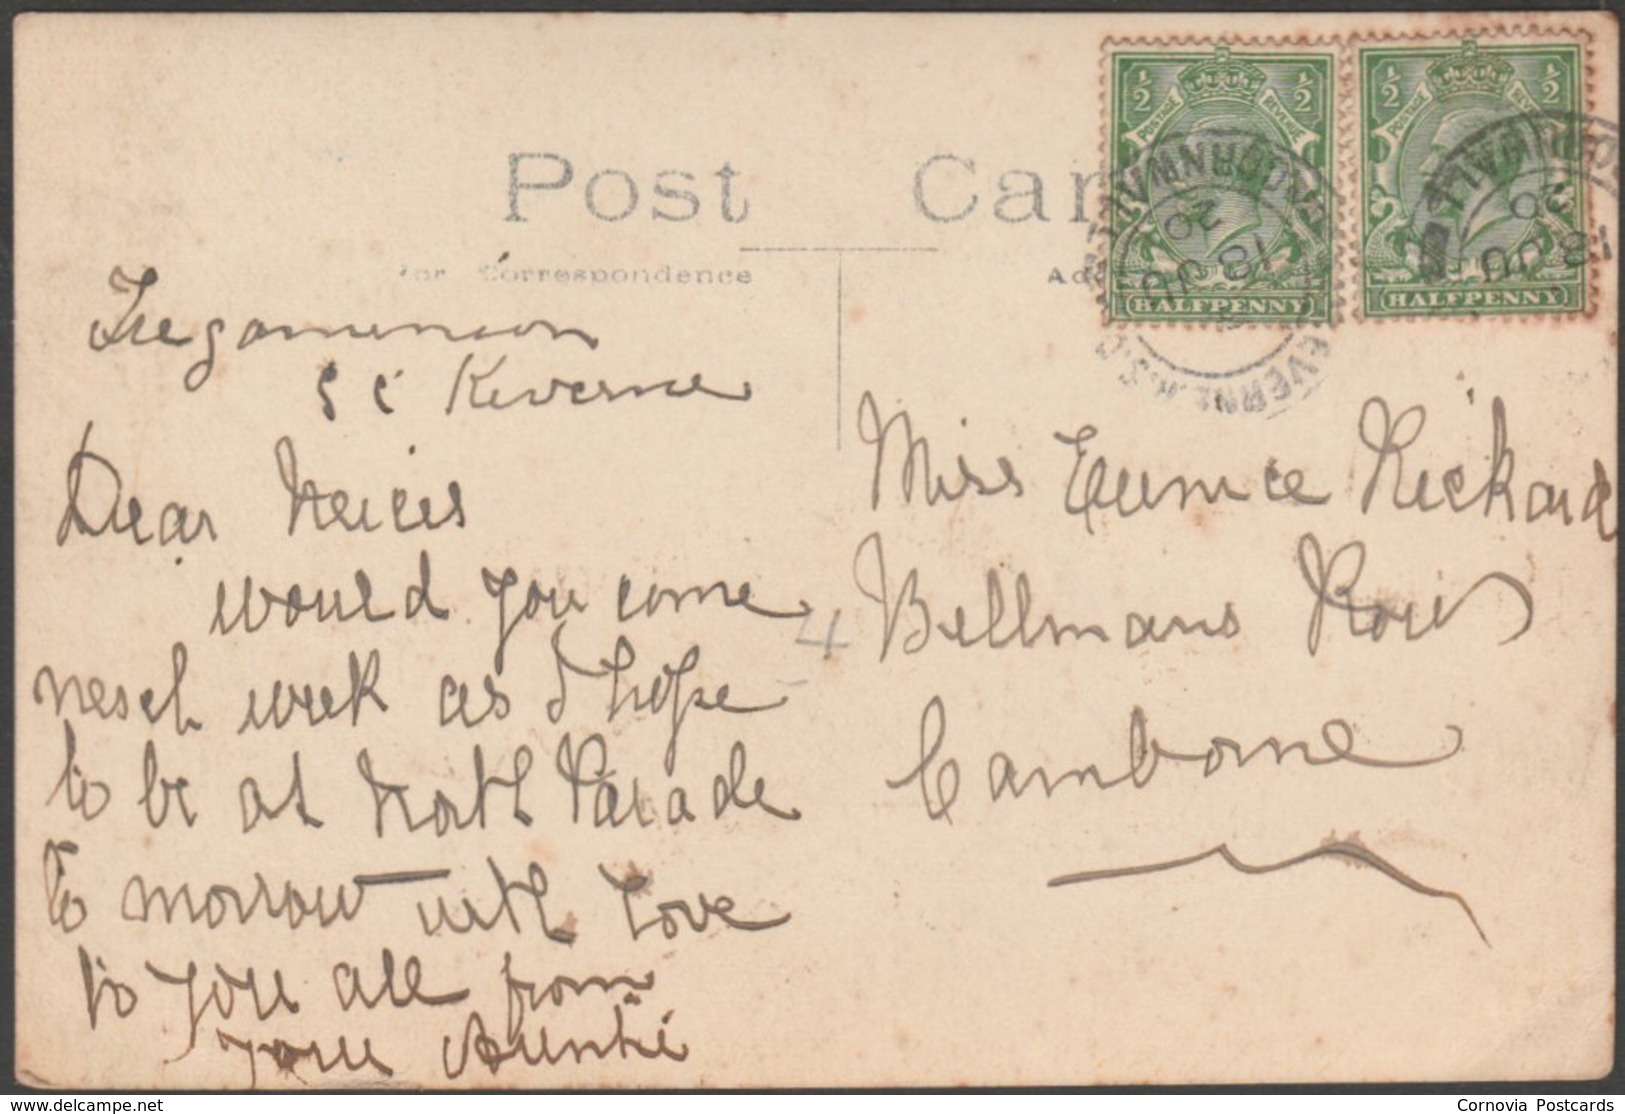 Post Card
For Correspondence
½ ½
POSTAGE REVENUE
HALFPENNY
½ ½
HALFPENNY
CORNWALL
18 JU
20
CORNWALL
18 JU
20
Tregaminion
St Keverne
Dear Neices
would you come
nesct week as I hope
to be at North Parade
to morrow with Love
to you all from
your Auntie
4
Miss Eunice Rickard
Bellmans Row
Camborne
delcampe.net
Cornovia Postcards